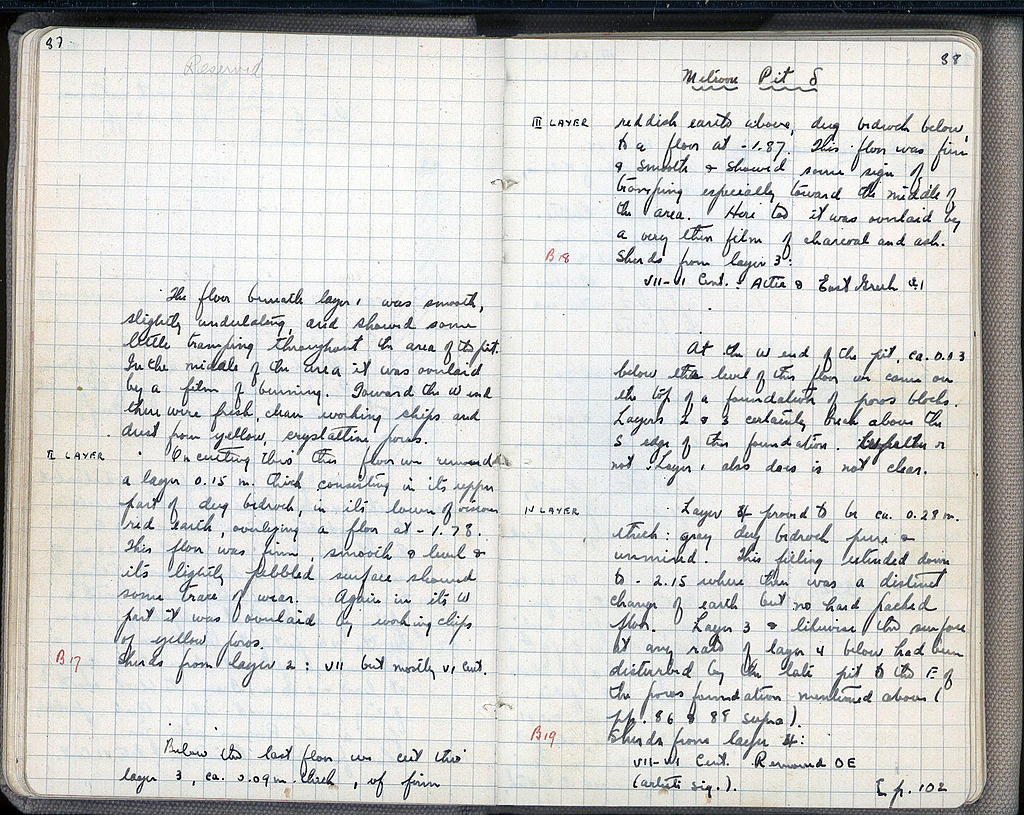 87
Reserved
The floor beneath layer 1 was smooth,
slightly undulating, and showed some
little tramping throughout the area of the pit.
In the middle of the area it was overlaid
by a film of burning. Toward the W end
there were fresh, clean working chips and
dust from yellow, crystalline poros.
II LAYER
On cutting thro' this floor we removed
a layer 0.15 m. thick consisting in its upper
part of dug bedrock, in its lower of
red earth, overlying a floor at -1.78.
This floor was firm, smooth & level &
its lightly pebbled surface showed
some trace of wear. Again in its W
part it was overlaid by working chips
of yellow poros.
B17
Sherds from layer 2: VII but mostly VI Cent.
Below the last floor we cut thro'
layer 3, ca. 0.09 m. thick, of firm
88
Pit 8
III LAYER
reddish earth above, dug bedrock below,
to a floor at -1.87. This floor was firm
& smooth & showed some sign of
tramping especially toward the middle of
the area. Here too it was overlaid by
a very thin film of charcoal and ash.
B18
Sherds from layer 3:
VII-VI Cent.: Attic & East Greek
At the W end of the pit, ca. 0.03
below the level of this floor we came on
the top of a foundation of poros blocks.
Layers 2 & 3 certainly break above the
S edge of this foundation. Whether or
not Layer 1 also does is not clear.
IV LAYER
Layer 4 proved to be ca. 0.28 m.
thick: gray dug bedrock pure &
unmixed. This filling extended down
to -2.15 where there was a distinct
change of earth but no hard packed
floor. Layer 3 & likewise the surface
at any rate of layer 4 below had been
disturbed by the late pit to the E of
the poros foundation mentioned above (
pp. 86 & 88 supra).
B19
Sherds from layer 4:
VII-VI Cent. Removed OE
[p. 102